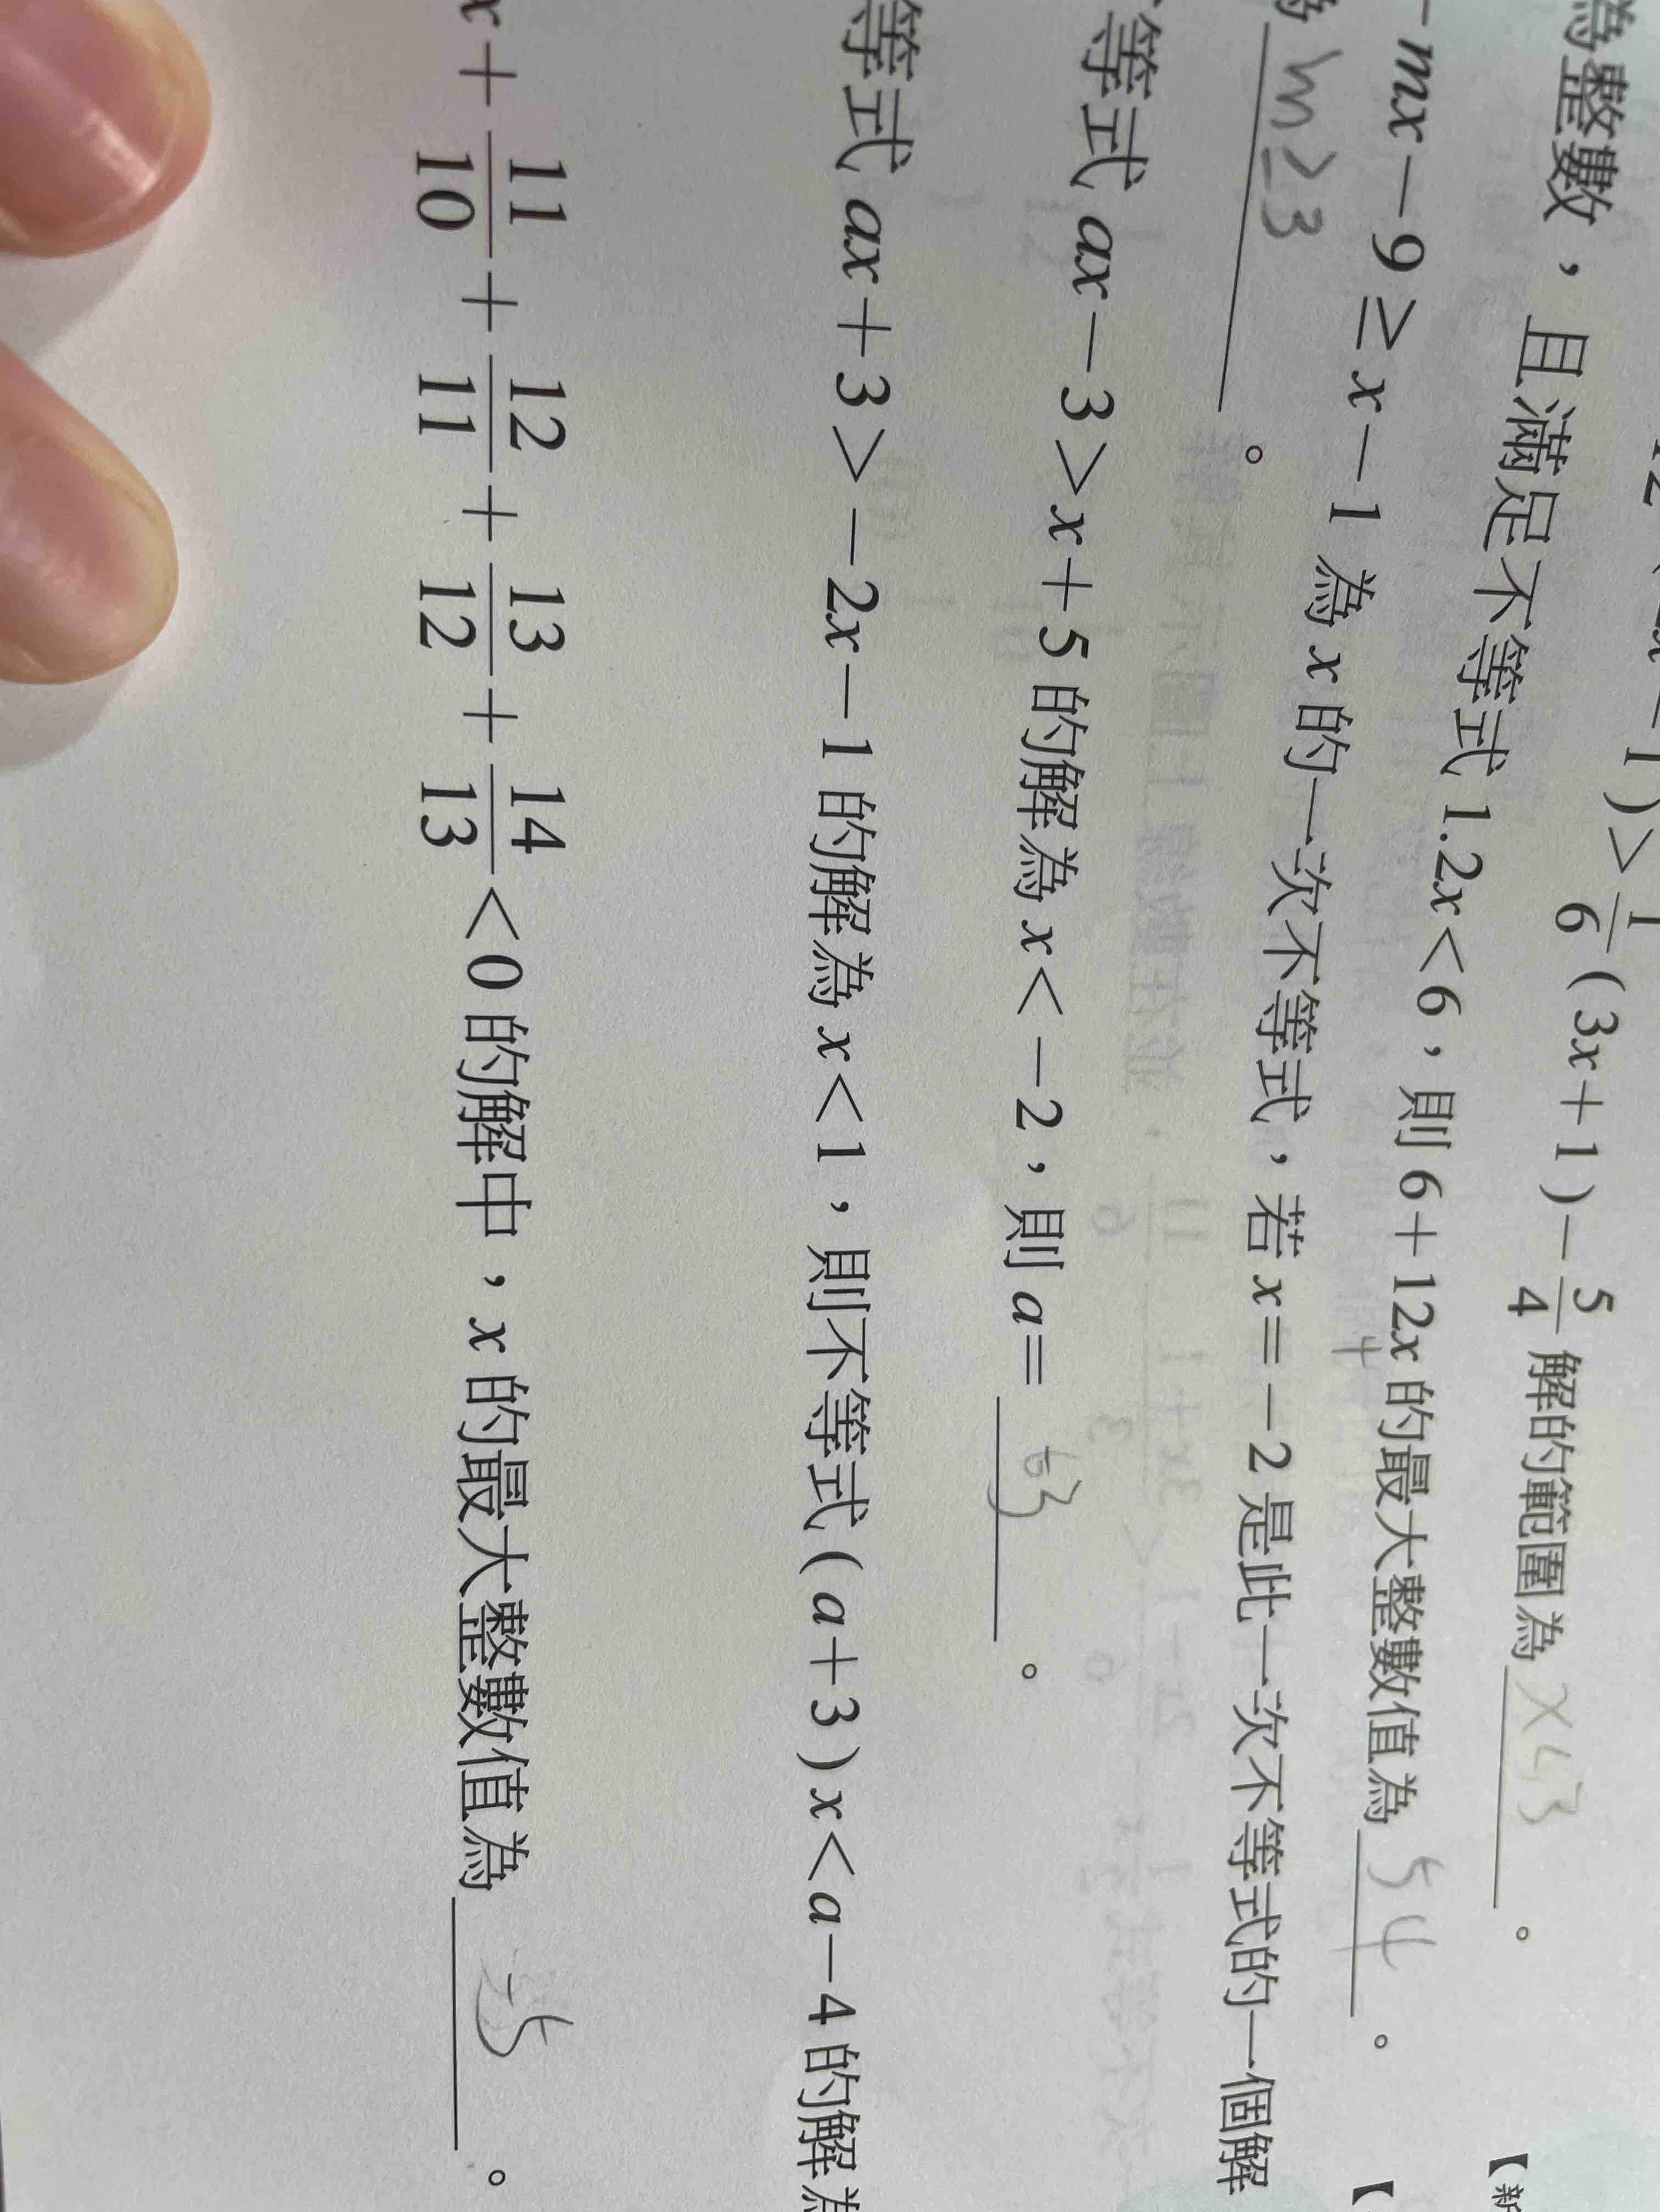 -1)>\frac{1}{6}(3x+1)-\frac{5}{4}解的範圍為 x<3 。
為整數，且滿足不等式1.2x<6，則6+12x的最大整數值為 54 。
-mx-9≥x-1為x的一次不等式，若x=-2是此一次不等式的一個解
為 m≥3 。
等式ax-3>x+5的解為x<-2，則a= 。
等式ax+3>-2x-1的解為x<1，則不等式(a+3)x<a-4的解為
x+\frac{11}{10}+\frac{12}{11}+\frac{13}{12}+\frac{14}{13}<0的解中，x的最大整數值為 -5 。